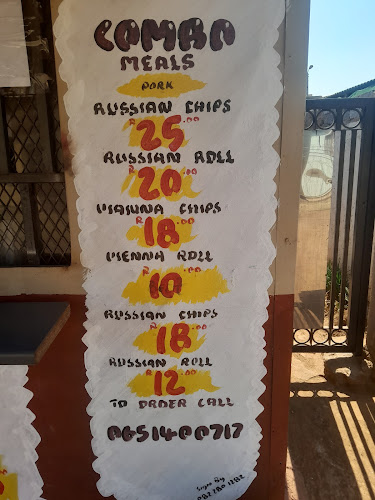 COMBO
MEALS
PORK
RUSSIAN CHIPS
R25.00
RUSSIAN ROLL
R20.00
VIANNA CHIPS
R18.00
VIENNA ROLL
R10.00
RUSSIAN CHIPS
R18.00
RUSSIAN ROLL
R12.00
TO ORDER CALL
0651400717
Signs By